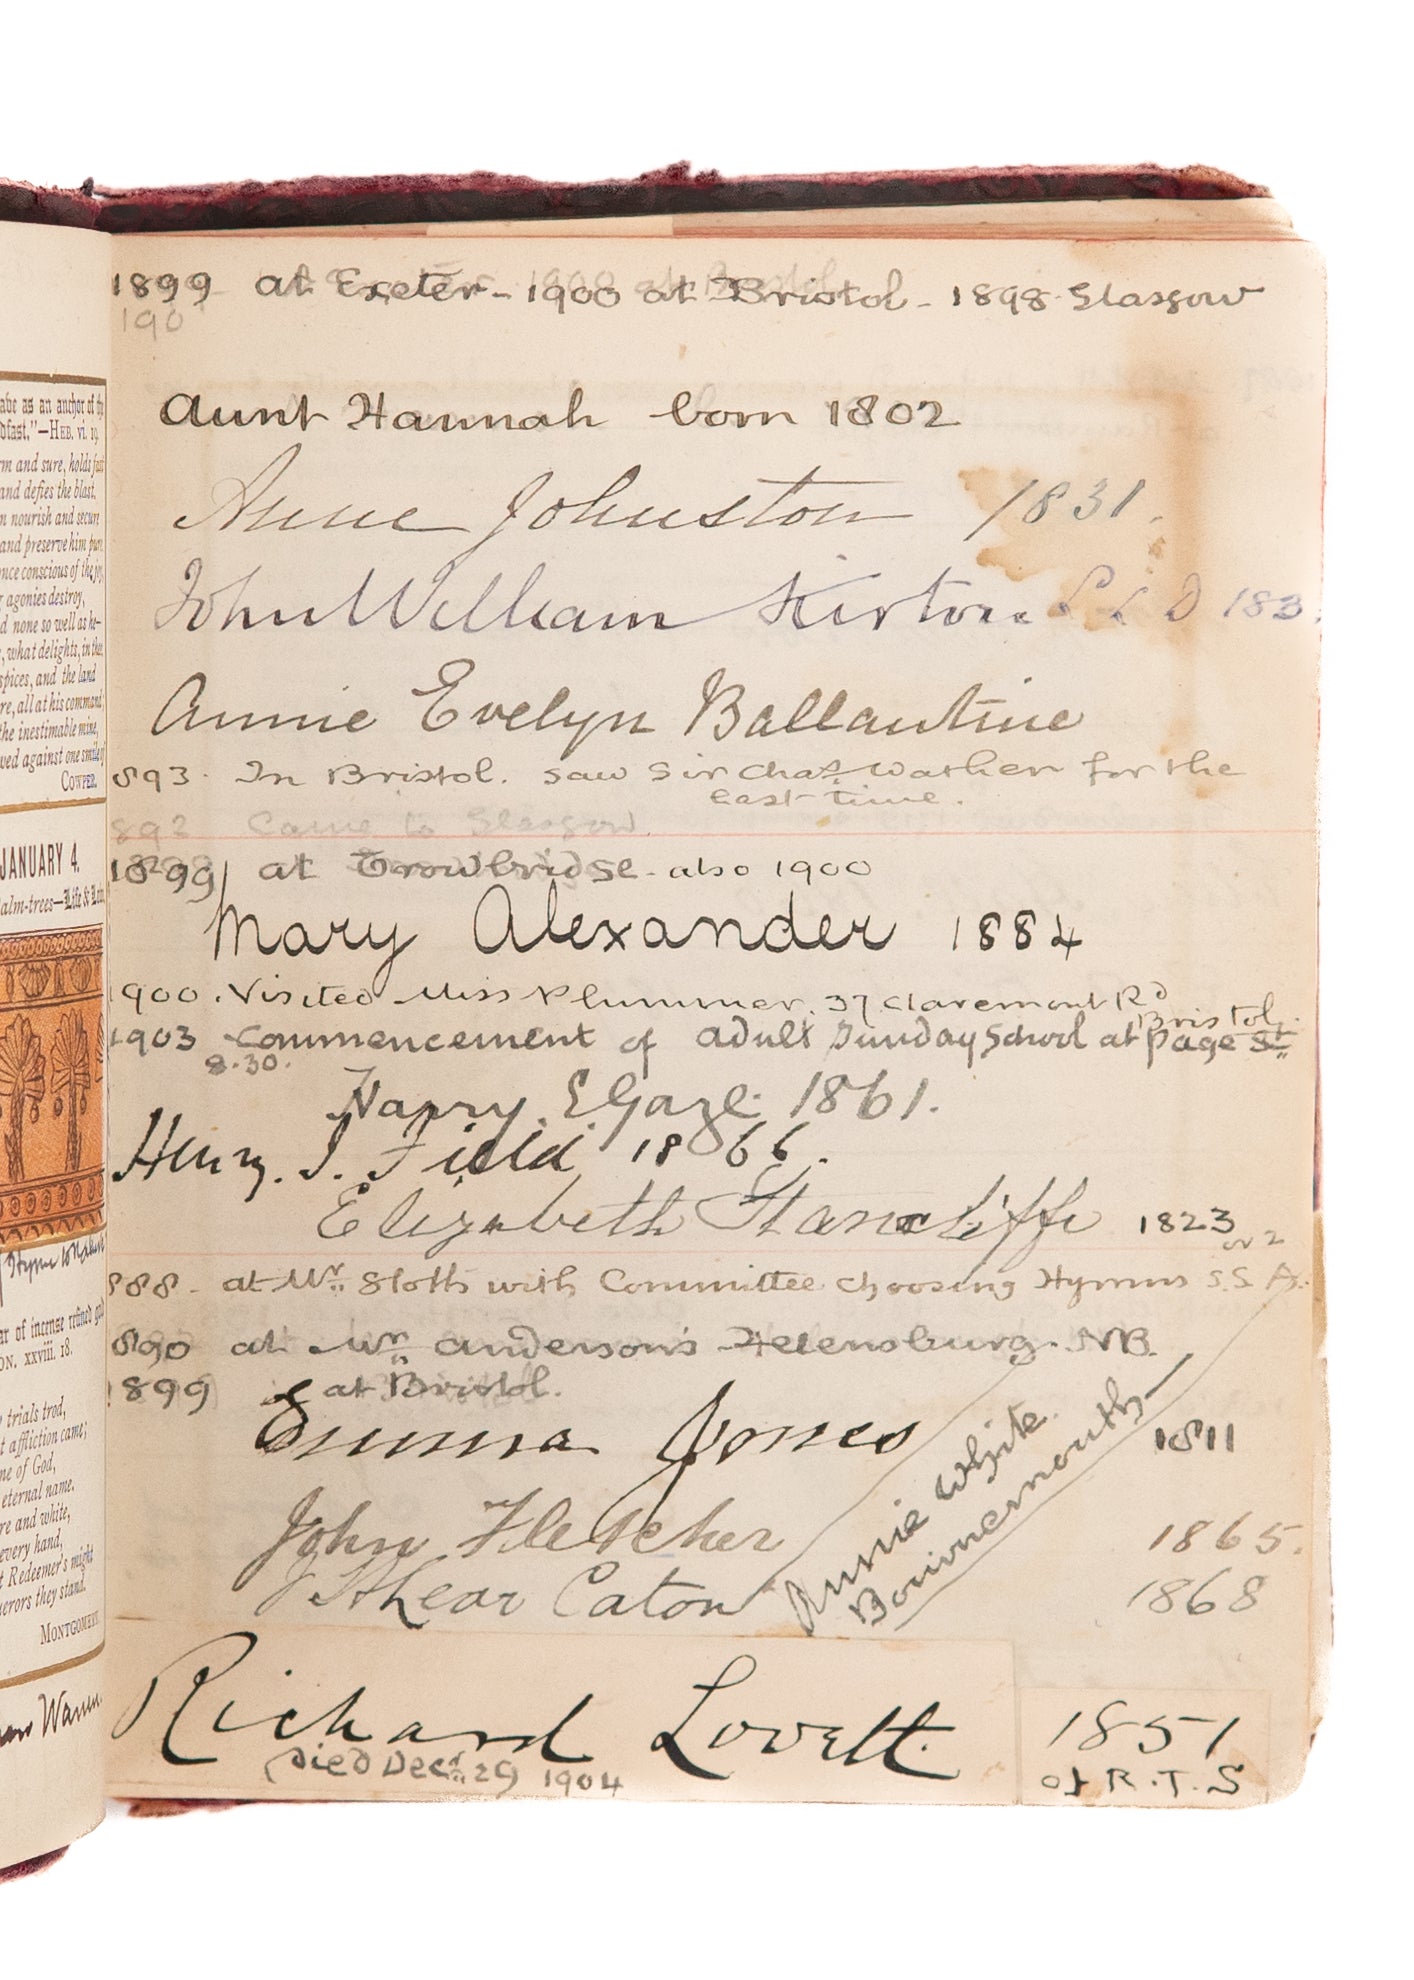 ave as an anchor of th
dfast."—HEB. vi. 19.
rm and sure, holds fast
and defies the blast.
n nourish and secure
and preserve him pure
nce conscious of the joy
r agonies destroy,
d none so well as he—
, what delights, in thee
spices, and the land
re, all at his command
the inestimable mine,
ved against one smile of
COWPER.
JANUARY 4.
alm-trees—Life &
ar of incense refined gold
ON. xxviii. 18.
trials trod,
t affliction came;
ne of God,
eternal name.
re and white,
every hand,
t Redeemer's might
uerors they stand.
MONTGOMERY.
1899 at Exeter - 1900 at Bristol - 1898 Glasgow
190
Aunt Hannah born 1802
Anne Johnston 1831.
John William Kirton LLD 183
Annie Evelyn Ballantine
893. In Bristol. saw Sir Chas. Wathen for the
last time.
892 Came to Glasgow.
1899 at Trowbridge - also 1900
Mary Alexander 1884
1900. Visited Miss Plummer. 37 Claremont Rd
Bristol.
1903 Commencement of Adult Sunday School at Page St
8.30.
Harry. E Gaze. 1861.
Henry. J. Field 1866.
Elizabeth Stancliffe 1823
or 2
888 - at Mr. Sloths with Committee choosing Hymns S.S.
890 at Mr. Anderson's Helensburg. N.B.
1899 at Bristol.
Emma Jones 1811
Annie White.
Bournemouth
John Fletcher 1865.
J Shear Caton 1868
Richard Lovett. 1851
Died Decr 29 1904 of R.T.S